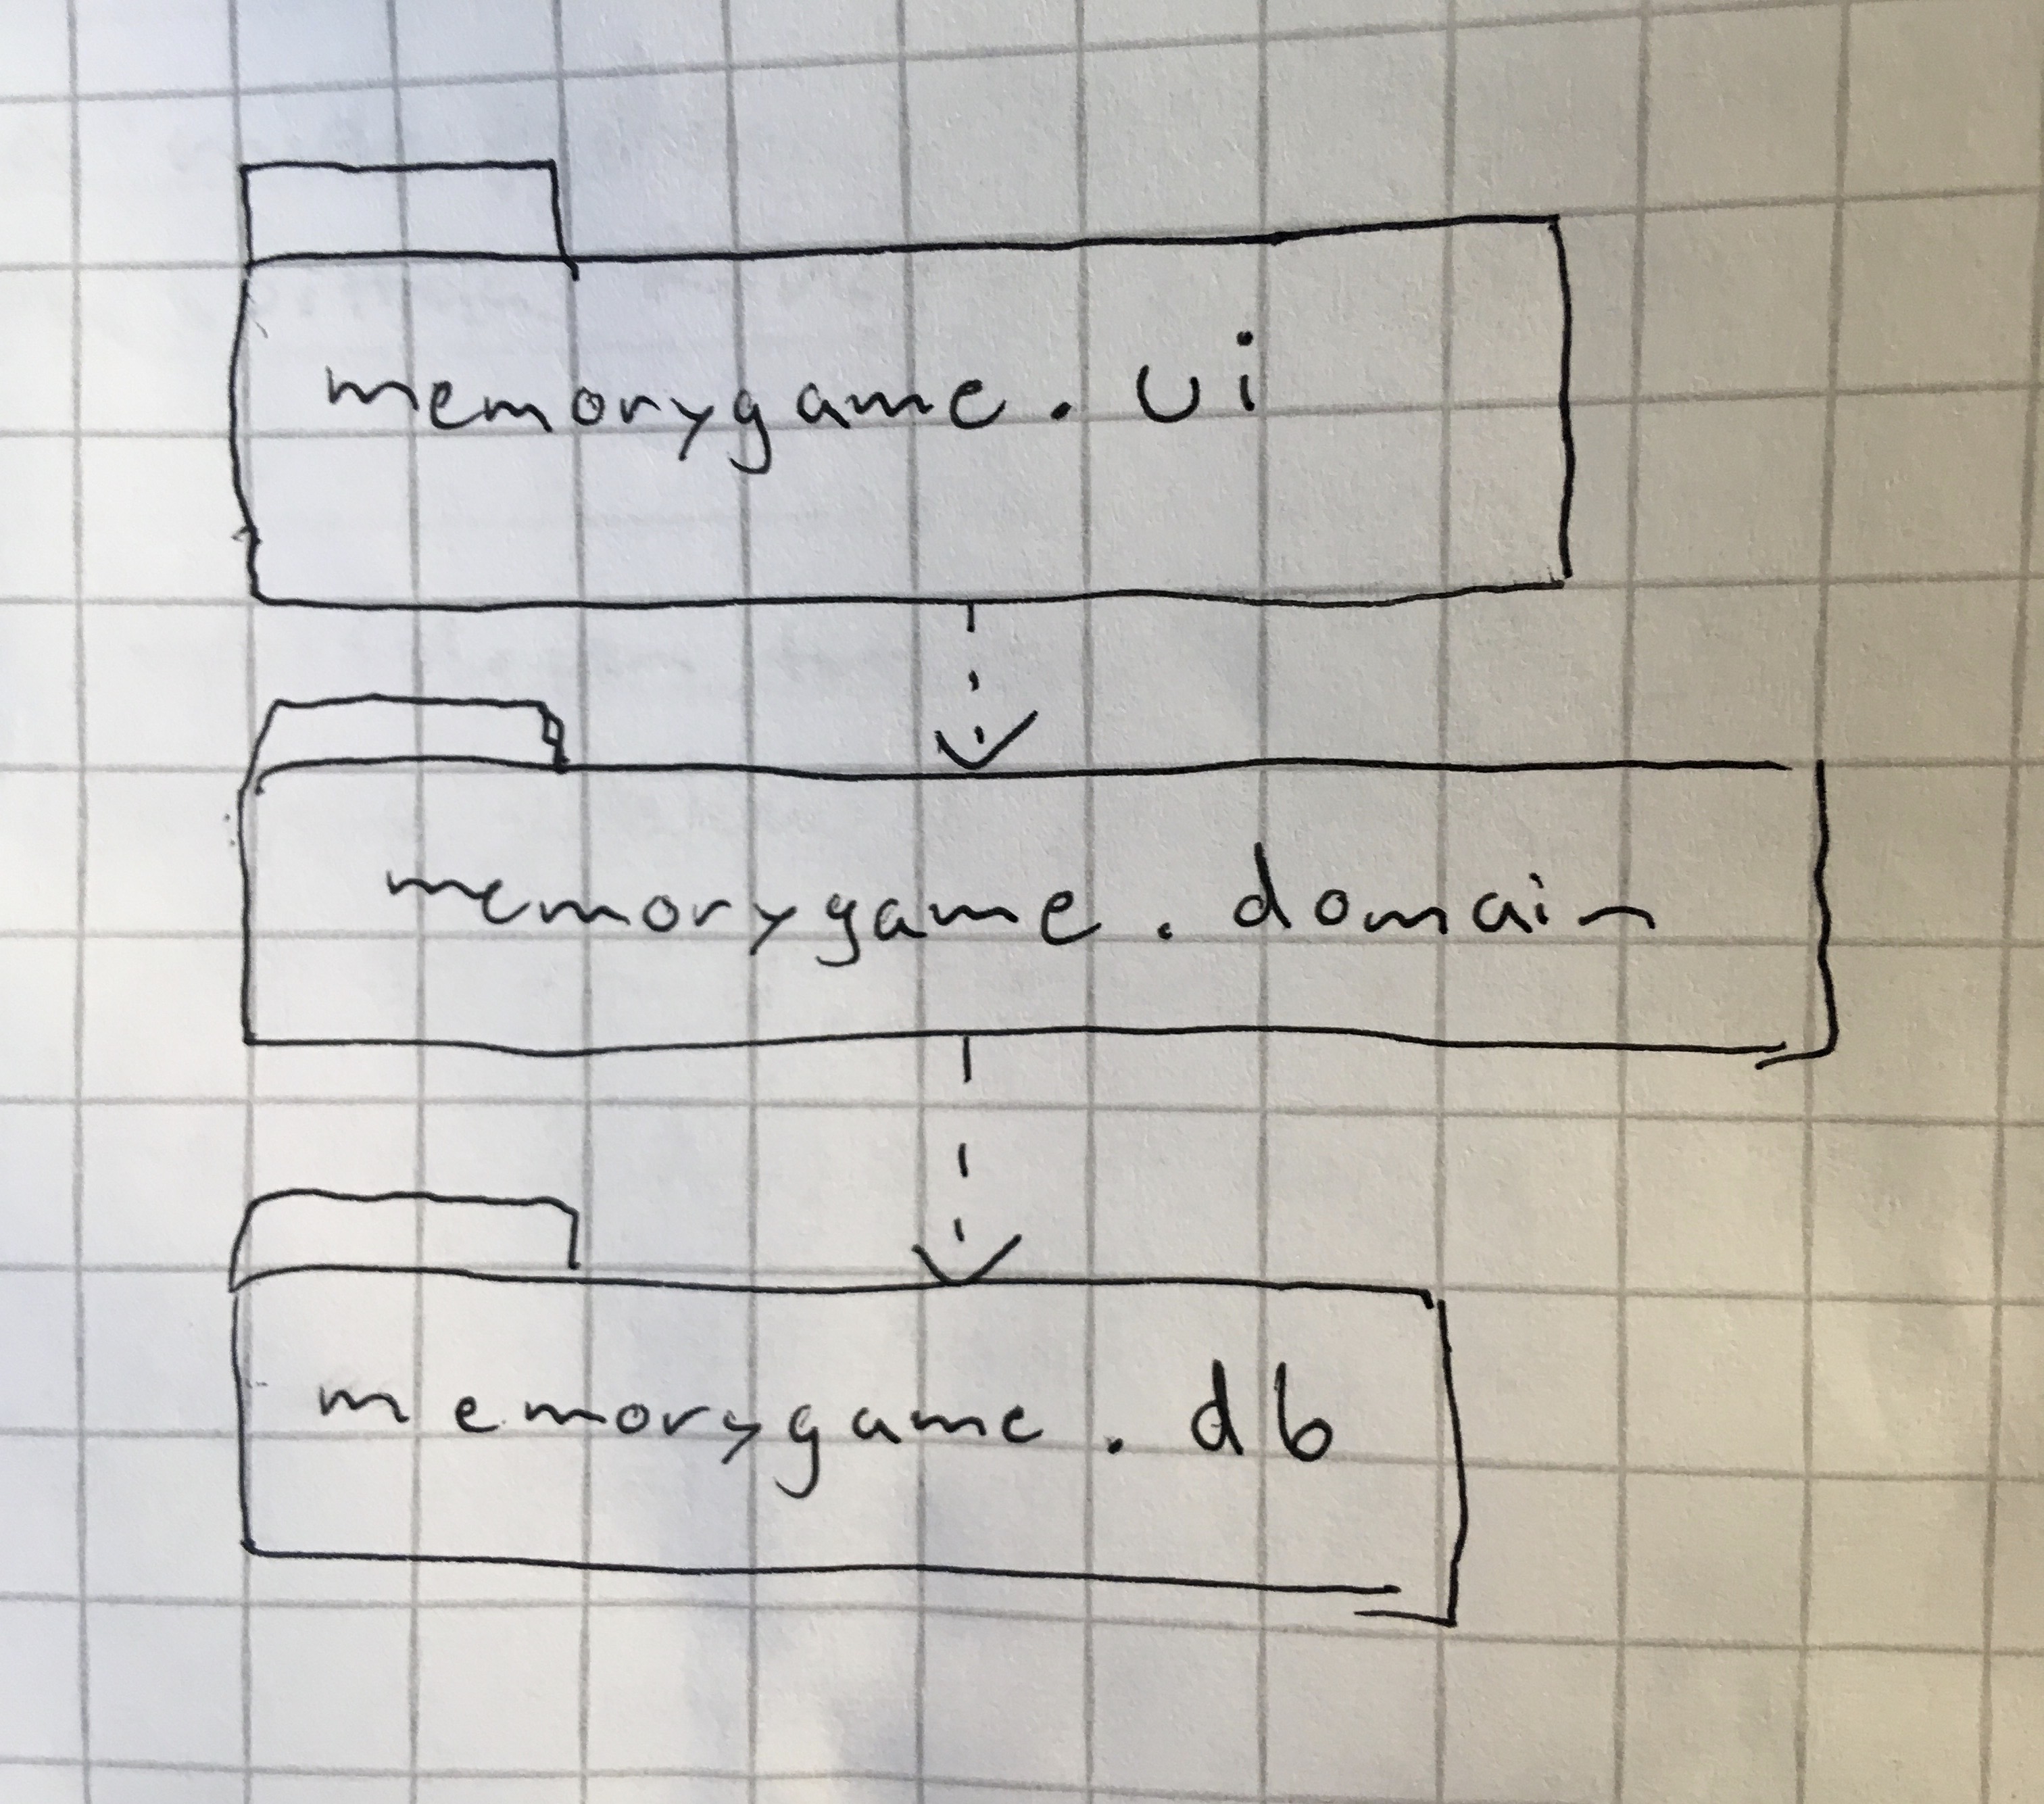 memorygame.ui
memorygame.domain
memorygame.db